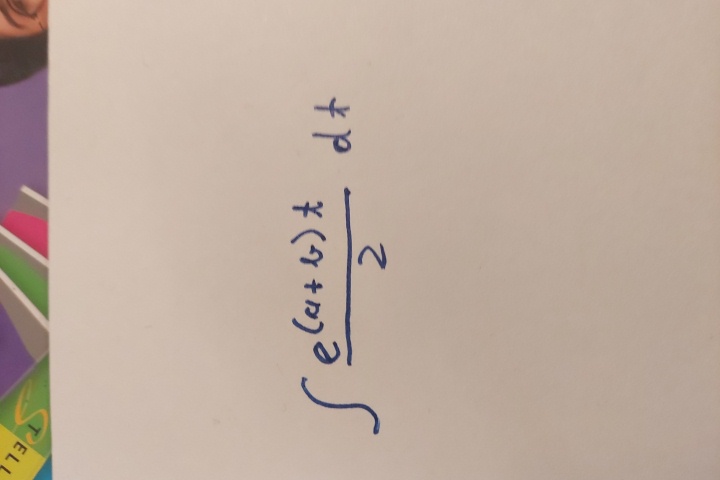 ELL
∫ e^{(a+b)t}/2 dt